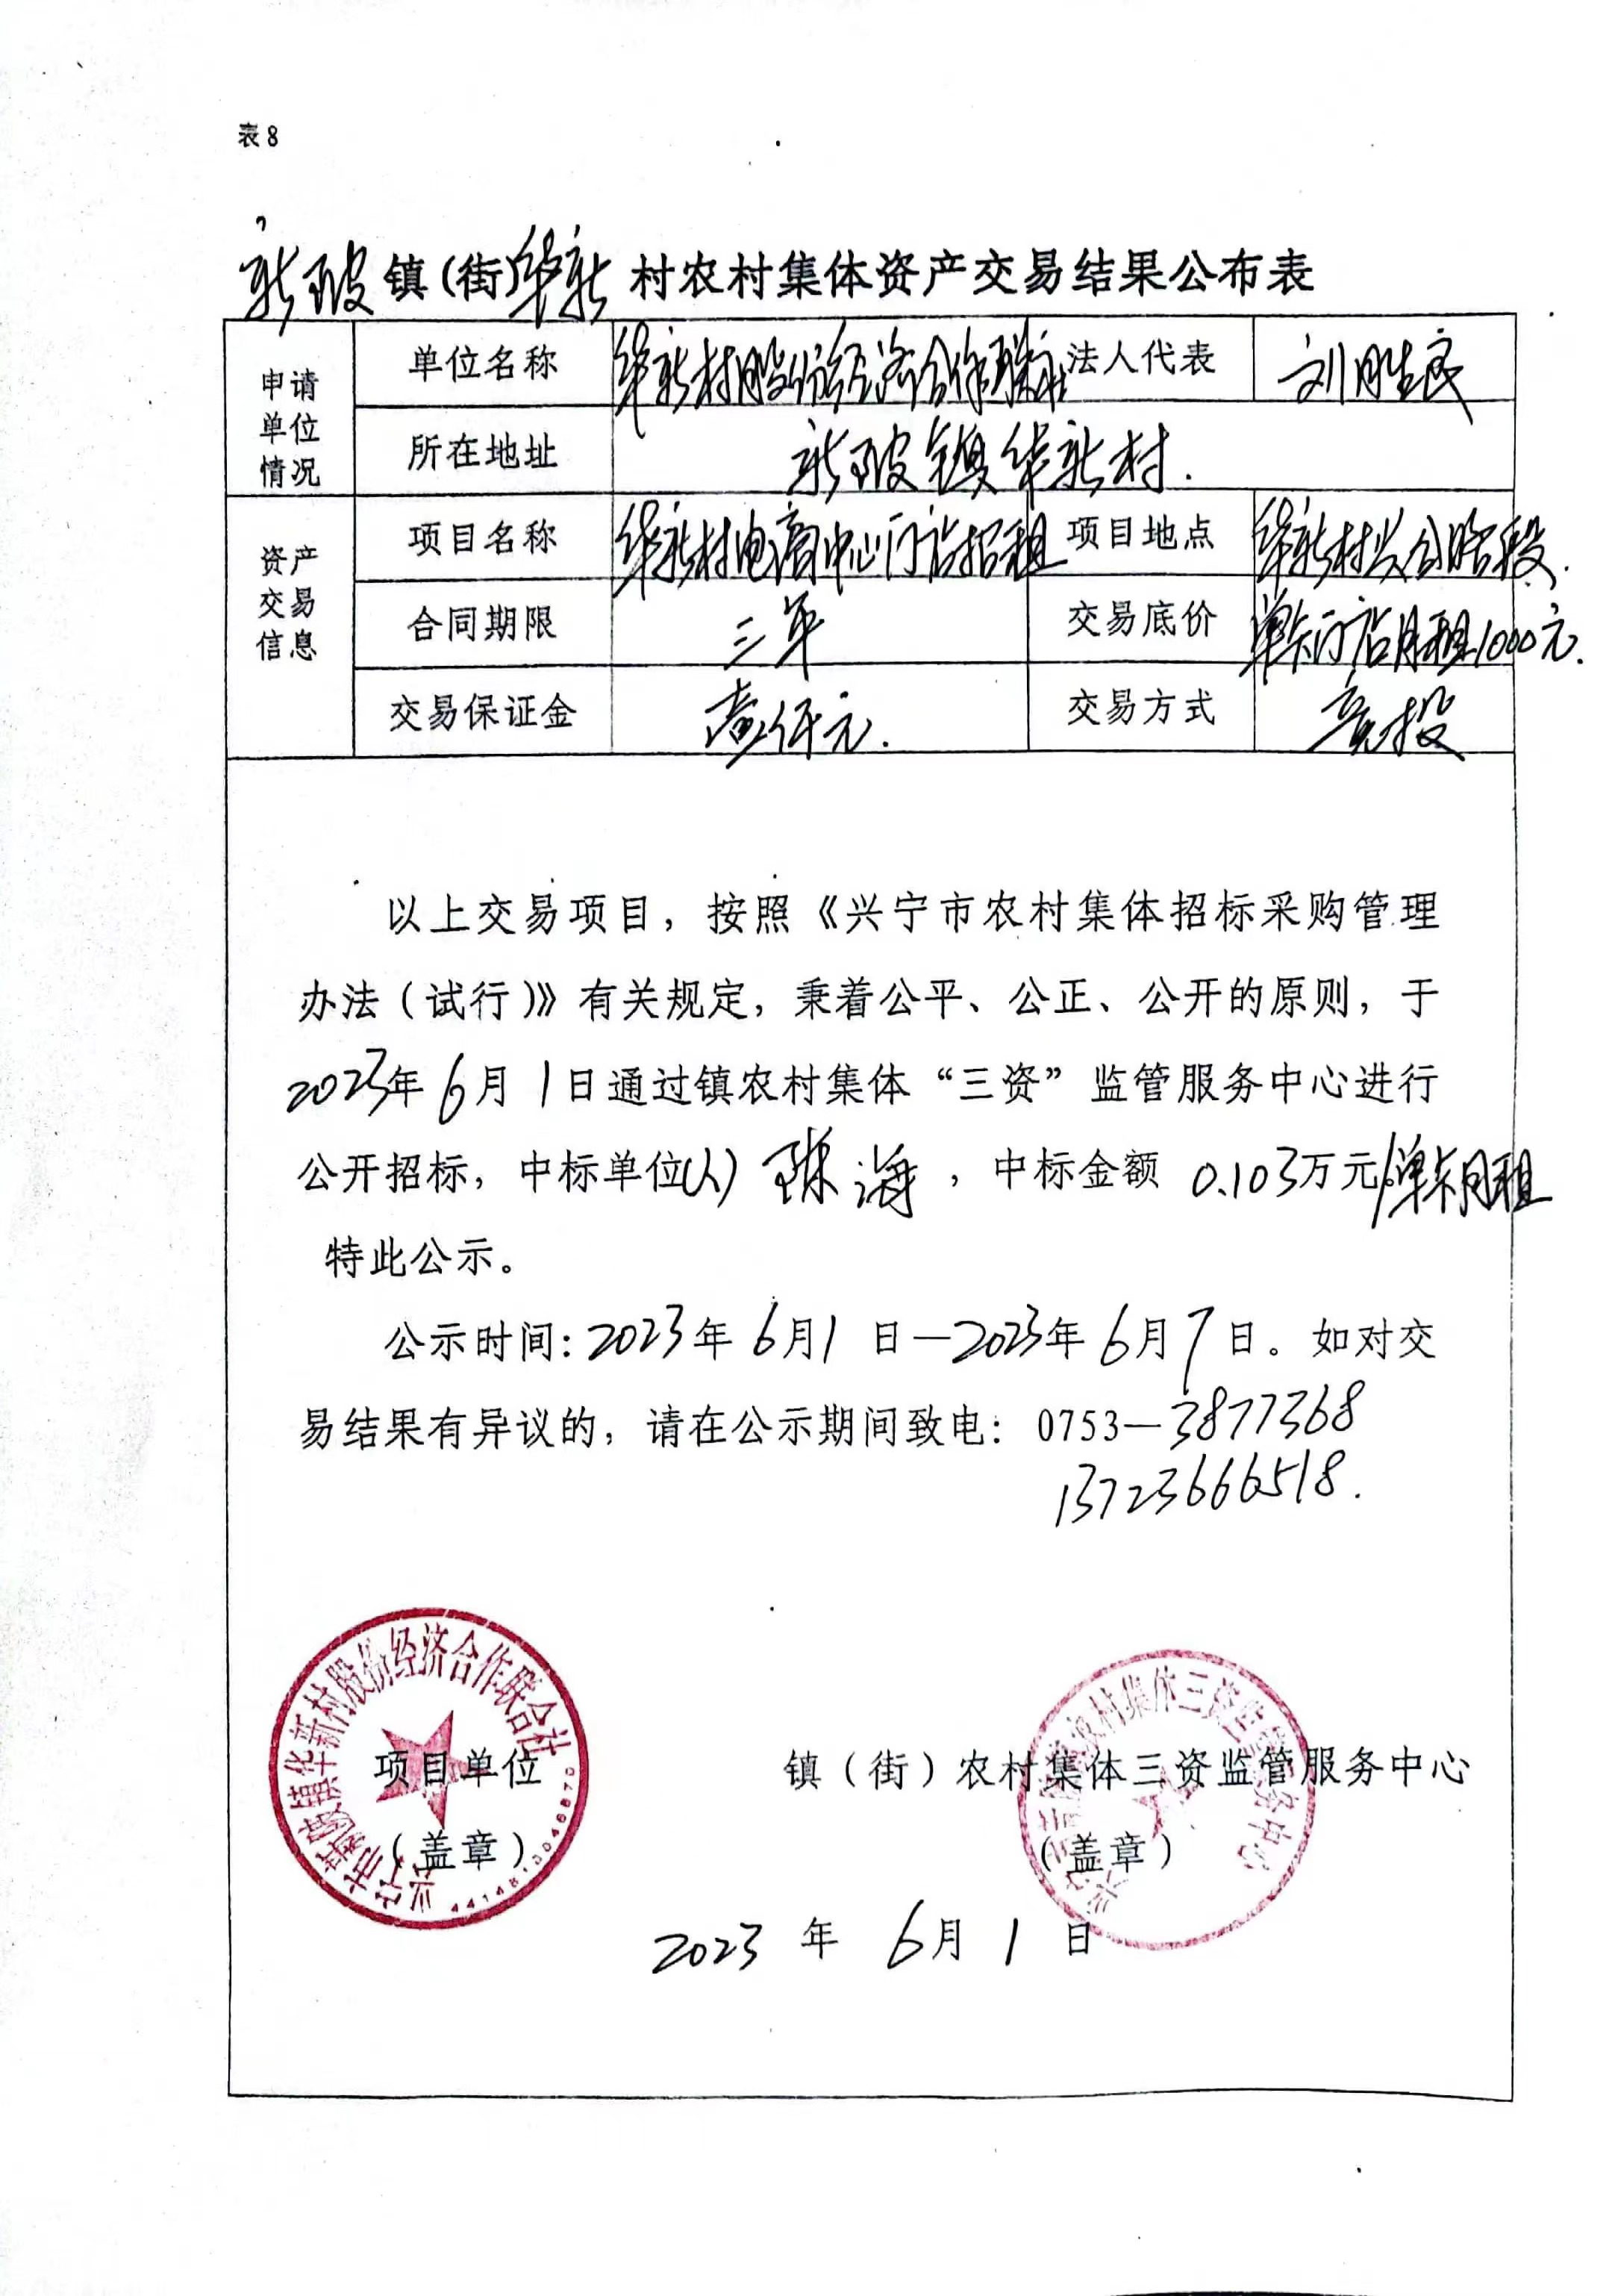 表8
新陂镇(街)华新村农村集体资产交易结果公布表
申请单位情况 单位名称 华新村股份经济合作联社 法人代表 刘胜民
所在地址 新陂镇华新村.
资产交易信息 项目名称 华新村电商中心门店招租 项目地点 华新村兴合路段.
合同期限 三年 交易底价 单卡门店月租1000元.
交易保证金 壹仟元. 交易方式 竞投
以上交易项目，按照《兴宁市农村集体招标采购管理
办法（试行）》有关规定，秉着公平、公正、公开的原则，于
2023年6月1日通过镇农村集体“三资”监管服务中心进行
公开招标，中标单位(人) 海，中标金额 0.103万元/单卡月租
特此公示。
公示时间：2023年6月1日—2023年6月7日。如对交
易结果有异议的，请在公示期间致电：0753—3877368
13723666518.
兴宁市新陂镇华新村股份经济合作联合社
项目单位 镇（街）农村集体三资监管服务中心
（盖章） （盖章）
2023年6月1日